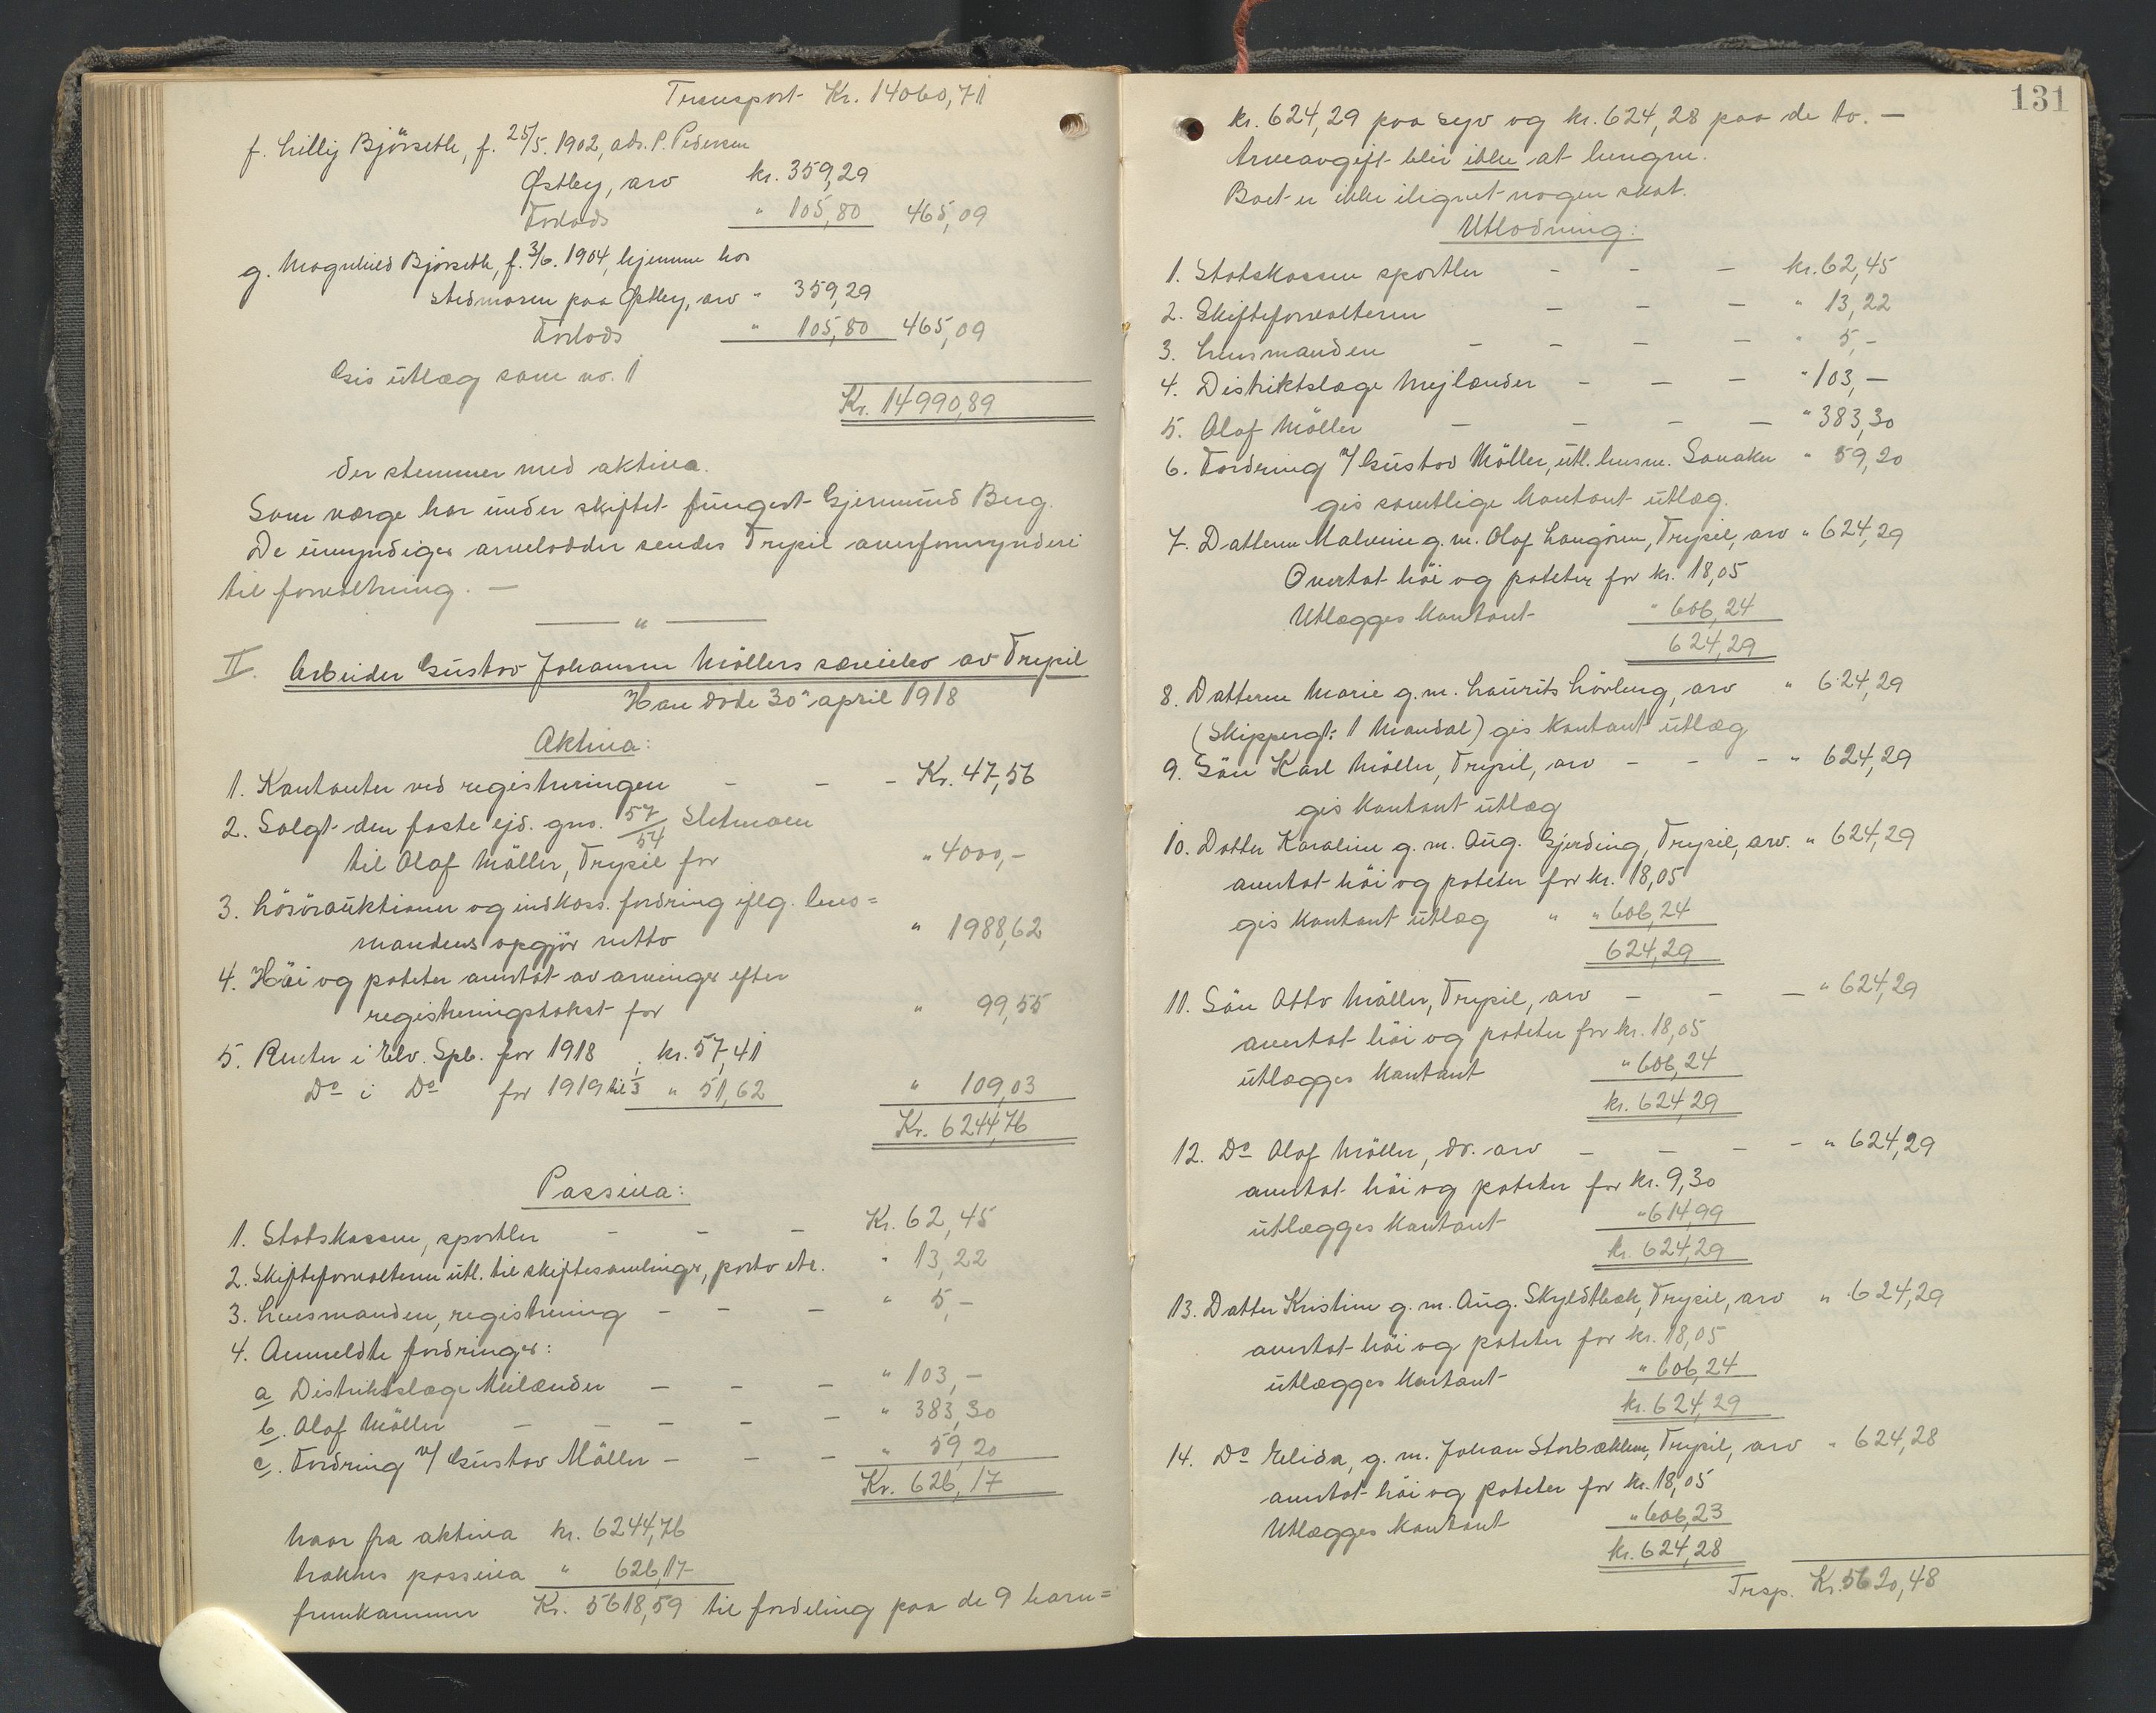 Transport Kr. 14060,71
f. Lillij Björseth, f. 25/5. 1902, adr. P. Pedersen
Østby, arv kr. 359,29
Forlods " 105,80 465,09
g. Magnhild Björseth, f. 3/6. 1904, hjemme hos
stedmoren paa Østby, arv " 359,29
Forlods " 105,80 465,09
Gis utlæg som no. 1
Kr. 14990,89
der stemmer med aktiva.
Som værge har under skiftet fungert Gjermund Berg.
De umyndiges arvelodder sendes Trysil overformynderi
til forvaltning. —
— " —
II. Arbeider Gustav Johansen Möllers særeiebo av Trysil
Han døde 30' april 1918
Aktiva:
1. Kontanter ved registreringen - - - Kr. 47,56
2. Solgt den faste ejd. gns. 57/54 Sletmoen
til Olaf Möller, Trysil for " 4000,-
3. Lösöreauktionen og indkass. fordring iflg. lens=
mandens opgjör netto " 1988,62
4. Höi og poteter overtat av arvinger efter
registreringstakst for " 99,55
5. Renter i Elv. Spb. for 1918 kr. 57,41
Do i Do for 1919 til 1/3 " 51,62 " 109,03
Kr. 6244,76
Passiva:
1. Statskassen, sportler - - - Kr. 62,45
2. Skifteforvalteren utl. til skiftesamlinger, porto etc. " 13,22
3. Lensmanden, registrering - - - " 5,-
4. Anmeldte fordringer:
a Distriktslæge Meilænder - - - " 103,-
b. Olaf Möller - - - - - " 383,30
c. Fordring v/ Gustav Möller - - - " 59,20
Kr. 626,17
Naar fra aktiva kr. 6244,76
trækkes passiva " 626,17
fremkommer Kr. 5618,59 til fordeling paa de 9 barn=
131
kr. 624,29 paa syv og kr. 624,28 paa de to. —
Arveavgift blir ikke at beregne.
Boet er ikke ilignet nogen skat.
Utlodning:
1. Statskassen sportler - - - kr. 62,45
2. Skifteforvalteren - - - " 13,22
3. Lensmanden - - - - " 5,-
4. Distriktslæge Mejlænder - - - " 103,—
5. Olaf Möller - - - - " 383,30
6. Fordring v/ Gustav Möller, utl. lensm. " 59,20
gis samtlige kontant utlæg.
7. Datteren Malvine g. m. Olaf Langören, Trysil, arv " 624,29
Overtat höi og poteter for kr. 18,05
Utlægges kontant " 606,24
624,29
8. Datteren Marie g. m. Laurits Lövberg, arv " 624,29
(Skippergt. 1 Mandal) gis kontant utlæg
9. Sön Karl Möller, Trysil, arv - - - " 624,29
gis kontant utlæg
10. Datter Karoline g. m. Aug. Gjerding, Trysil, arv. " 624,29
overtat höi og poteter for kr. 18,05
gis kontant utlæg " " 606,24
624,29
11. Sön Otto Möller, Trysil, arv - - — " 624,29
overtat höi og poteter for kr. 18,05
utlægges kontant " 606,24
kr. 624,29
12. Do Olaf Möller, do. arv - - - - " 624,29
overtat höi og poteter for kr. 9,30
utlægges kontant " 614,99
kr. 624,29
13. Datter Kristine g. m. Aug. Skyldtbæk, Trysil, arv " 624,29
overtat höi og poteter for kr. 18,05
utlægges kontant " 606,24
kr. 624,29
14. Do Elida, g. m. Johan Storbækken, Trysil, arv " 624,28
overtat höi og poteter for kr. 18,05
Utlægges kontant " 606,23
kr. 624,28
Trsp. Kr. 5620,48